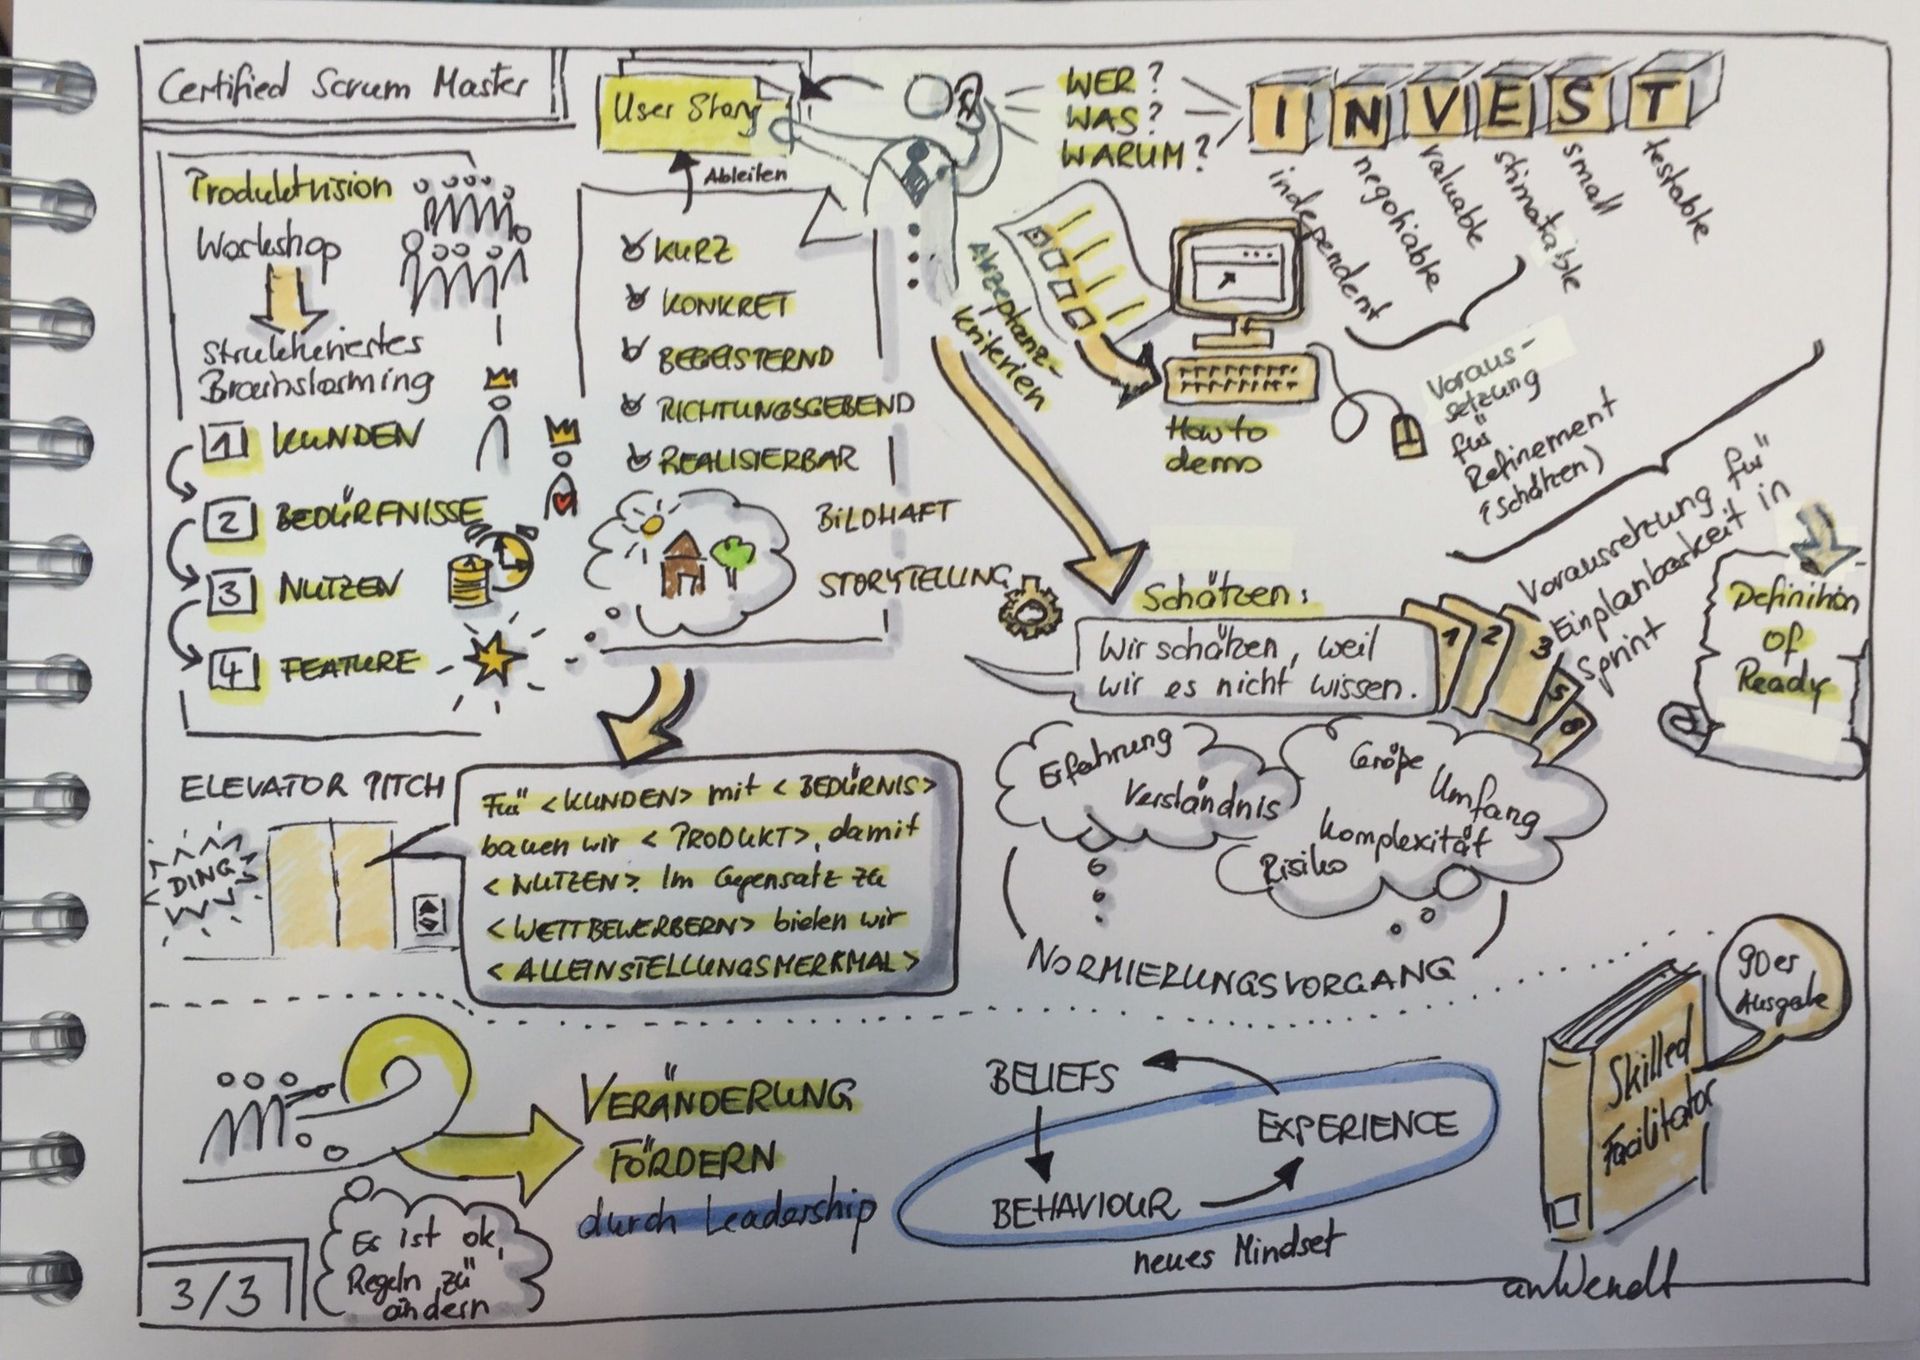 Certified Scrum Master
Produktvision
Workshop
Strukturiertes
Brainstorming
1 KUNDEN
2 BEDÜRFNISSE
3 NUTZEN
4 FEATURE
User Story
Ableiten
KURZ
KONKRET
BEGEISTERND
RICHTUNGSGEBEND
REALISIERBAR
BILDHAFT
STORYTELLING
WER?
WAS?
WARUM?
INVEST
independent
negotiable
valuable
stimatable
small
testable
Akzeptanz-
kriterien
How to
demo
Voraus-
setzung
für
Refinement
(Schätzen)
Voraussetzung für
Einplanbarkeit in
Sprint
Definition
of
Ready
Schätzen:
Wir schätzen, weil
wir es nicht wissen.
1
2
3
5
8
Erfahrung
Verständnis
Größe
Umfang
Komplexität
Risiko
NORMIERUNGSVORGANG
ELEVATOR PITCH
DING
Für <KUNDEN> mit <BEDÜRNIS>
bauen wir <PRODUKT>, damit
<NUTZEN>. Im Gegensatz zu
<WETTBEWERBERN> bieten wir
<ALLEINSTELLUNGSMERKMAL>
VERÄNDERUNG
FÖRDERN
durch Leadership
Es ist ok,
Regeln zu
ändern
BELIEFS
EXPERIENCE
BEHAVIOUR
neues Mindset
90er
Ausgabe
Skilled
Facilitator
anWendt
3/3